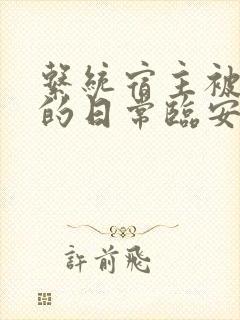 繫統宿主被
的日常臨安
許前飛